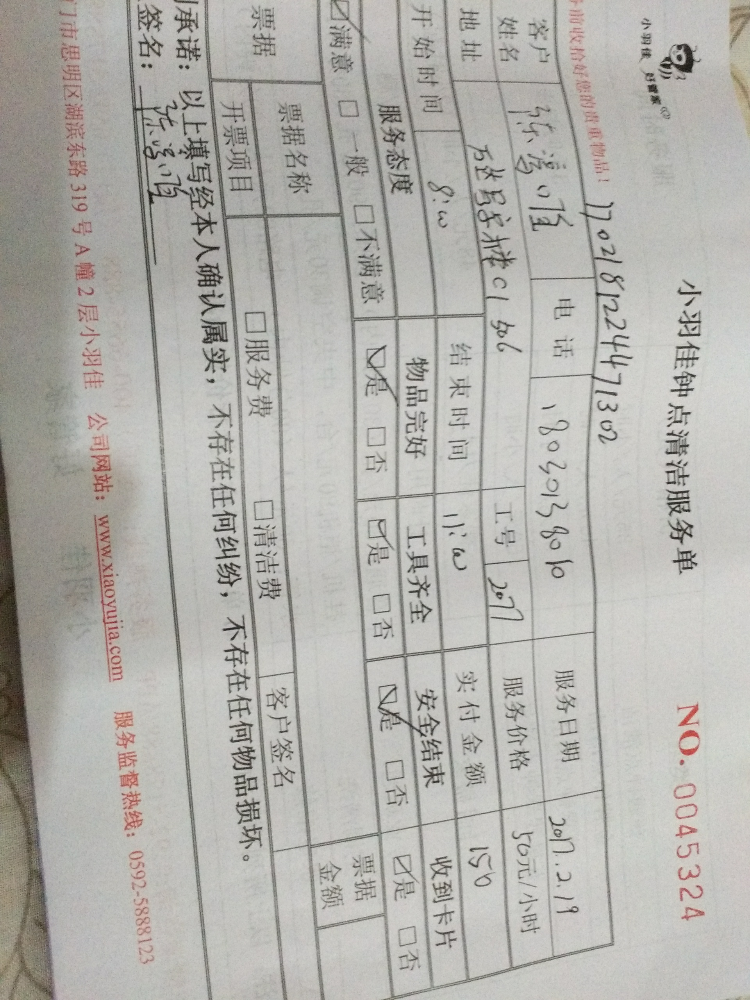 小羽佳 好管家
小羽佳钟点清洁服务单
NO. 0045324
前收拾好您的贵重物品！
1702181224471302
客户姓名 电话 18030138010 服务日期 2017.2.19
地址 C1 306 工号 2077 服务价格 50元/小时
开始时间 8:00 结束时间 11:00 实付金额 150
服务态度 物品完好 工具齐全 安全结束 收到卡片
☑满意 □一般 □不满意 ☑是 □否 ☑是 □否 ☑是 □否 ☑是 □否
票据 票据名称 票据金额
开票项目 □服务费 □清洁费 客户签名
承诺：以上填写经本人确认属实，不存在任何纠纷，不存在任何物品损坏。
签名：
门市思明区湖滨东路319号A幢2层小羽佳 公司网站：www.xiaoyujia.com 服务监督热线：0592-5888123